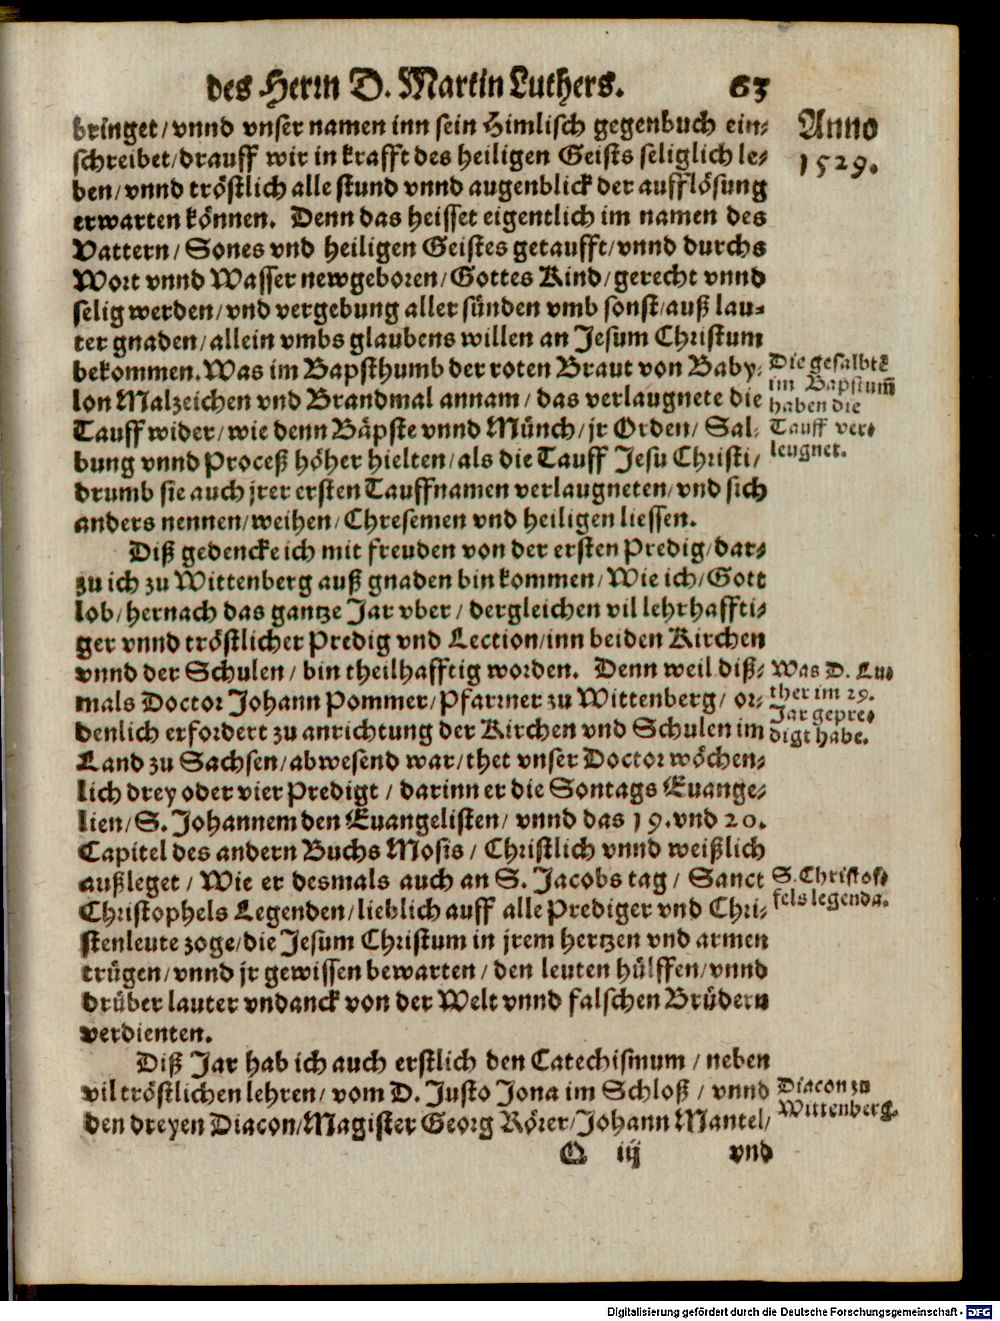 des Herrn D. Martin Luthers. 63
Anno
1529.
bringet/vnnd vnser namen inn sein Himlisch gegenbuch ein⸗
schreibet/drauff wir in krafft des heiligen Geists seliglich le⸗
ben/vnnd tröstlich alle stund vnnd augenblick der aufflösung
erwarten können. Denn das heisset eigentlich im namen des
Vattern/Sones vnd heiligen Geistes getaufft/vnnd durchs
Wort vnnd Wasser newgeboren/Gottes Kind/gerecht vnnd
selig werden/vnd vergebung aller sünden vmb sonst/auß lau⸗
ter gnaden/allein vmbs glaubens willen an Jesum Christum
bekommen. Was im Bapsthumb der roten Braut von Baby⸗
lon Malzeichen vnd Brandmal annam/das verlaugnete die
Tauff wider/wie denn Bäpste vnnd Münch/jr Orden/Sal⸗
bung vnnd Proceß höher hielten/als die Tauff Jesu Christi/
drumb sie auch jrer ersten Tauffnamen verlaugneten/vnd sich
anders nennen/weihen/Chresemen vnd heiligen liessen.
Die gesalbte
im Bapstum̃
haben die
Tauff ver⸗
leugnet.
Diß gedencke ich mit freuden von der ersten Predig/dar⸗
zu ich zu Wittenberg auß gnaden bin kommen/Wie ich/Gott
lob/hernach das gantze Jar vber/dergleichen vil lehrhaffti⸗
ger vnnd tröstlicher Predig vnd Lection/inn beiden Kirchen
vnnd der Schulen/bin theilhafftig worden. Denn weil diß⸗
mals Doctor Johann Pommer/Pfarrner zu Wittenberg/or⸗
denlich erfordert zu anrichtung der Kirchen vnd Schulen im
Land zu Sachsen/abwesend war/thet vnser Doctor wöchen⸗
lich drey oder vier Predigt/darinn er die Sontags Euange⸗
lien/S. Johannem den Euangelisten/vnnd das 19. vnd 20.
Capitel des andern Buchs Mosis/Christlich vnnd weißlich
außleget/Wie er desmals auch an S. Jacobs tag/Sanct
Christophels Legenden/lieblich auff alle Prediger vnd Chri⸗
stenleute zoge/die Jesum Christum in jrem hertzen vnd armen
trügen/vnnd jr gewissen bewarten/den leuten hülffen/vnnd
drüber lauter vndanck von der Welt vnnd falschen Brüdern
verdienten.
Was D. Lu⸗
ther im 29.
Jar gepre⸗
digt habe.
S. Christof⸗
fels legenda.
Diß Jar hab ich auch erstlich den Catechismum/neben
vil tröstlichen lehren/vom D. Justo Jona im Schloß/vnnd
den dreyen Diacon/Magister Georg Rörer/Johann Mantel/
Diacon zu
Wittenberg.
Q iij vnd
Digitalisierung gefördert durch die Deutsche Forschungsgemeinschaft - DFG